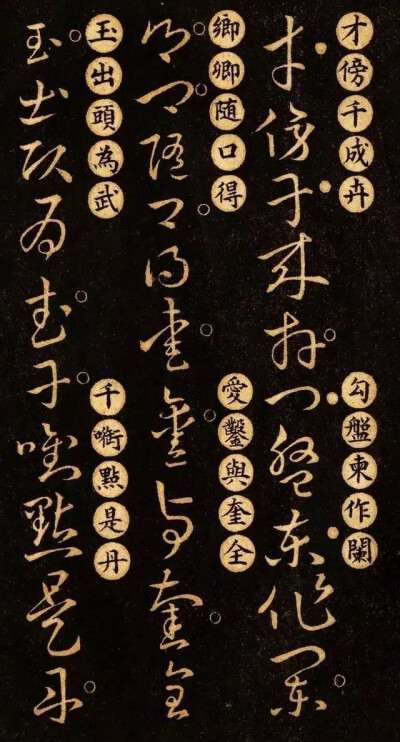 才傍千成卉
勾盤柬作闌
鄉卿随口得
愛鑿與奎全
玉出頭為武
千啣點是丹